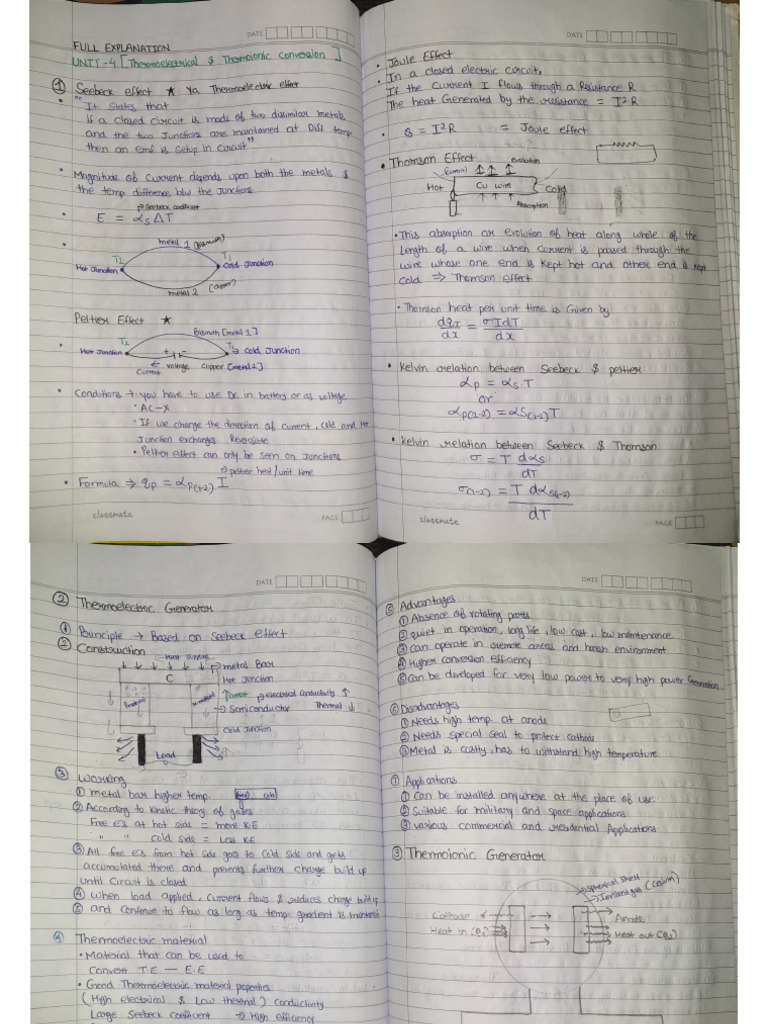 DATE
FULL EXPLANATION
UNIT-4 [Thermoelectrical & Thermoionic Conversion]
① Seebeck effect ★ Ya Thermoelectric effect
• "It States that
If a closed circuit is made of two dissimilar metals
and the two Junctions are maintained at Diff temp
then an emf is setup in circuit"
• Magnitude of current depends upon both the metals &
the temp difference b/w the Junctions
Seebeck coefficient
• E = αs ΔT
metal 1 (Bismuth)
T2
T1
Hot Junction
Cold Junction
metal 2 (Copper)
Peltier Effect ★
Bismuth [metal 1]
T2
T1
Hot Junction
Cold Junction
+ -
voltage
Copper [metal 2]
Current
• Conditions → • you have to use DC in battery or as voltage
• AC-X
• If we change the direction of current, cold and hot
Junction exchanges Reversible
• Peltier effect can only be seen on Junctions
→ peltier heat / unit time
• Formula ⇒ qp = αp(1-2) I
classmate
PAGE
DATE
• Joule Effect
• In a closed electric circuit,
If the Current I flows through a Resistance R
The heat Generated by the resistance = I²R
• Q = I²R = Joule effect
• Thomson Effect
evolution
Current
Hot
Cu wire
Cold
Absorption
• This absorption or evolution of heat along whole of the
length of a wire when current is passed through the
wire whose one end is kept hot and other end is kept
cold ⇒ Thomson effect
• Thomson heat per unit time is Given by
dqx/dx = σIdT/dx
• Kelvin relation between Seebeck & peltier
αp = αs.T
or
αp(1-2) = αs(1-2)T
• Kelvin relation between Seebeck & Thomson
σ = T dαs/dT
σ(1-2) = T dαs(1-2)/dT
classmate
PAGE
DATE
② Thermoelectric Generator
① Principle → Based on Seebeck effect
② Construction
Heat supply
→ metal Bar
C
Hot Junction
electrical conductivity ↑
→ Semiconductor Thermal ↓
Cold Junction
Load
③ Working
① metal bar higher temp.
hot cold
② According to kinetic theory of gases
Free e's at hot side = more K.E
" " cold side = Less K.E
③ All free e's from hot side goes to cold side and gets
accumulated there and prevents further charge build up
until circuit is closed
④ when load applied, current flows & reduces charge build up
⑤ and continue to flow as long as temp gradient is maintained
④ Thermoelectric material
• Material that can be used to
Convert T.E — E.E
• Good Thermoelectric material properties
(High electrical & Low thermal) conductivity
Large Seebeck coefficient ⇒ High efficiency
DATE
⑤ Advantages
① Absence of rotating parts
② quiet in operation, long life, low cost, low maintenance.
③ can operate in remote areas and harsh environment
④ Higher conversion efficiency
⑤ Can be developed for very low power to very high power Generation
⑥ Disadvantages
① Needs high temp. at anode
② Needs special seal to protect cathode
③ Metal is costly, has to withstand high temperature
⑦ Applications
① Can be installed anywhere at the place of use.
② Suitable for military and space applications
③ various commercial and residential Applications
③ Thermoionic Generator
→ Spherical Shell
→ Ionized gas (Cesium)
Cathode
Anode
Heat in (Q1)
Heat out (Q2)